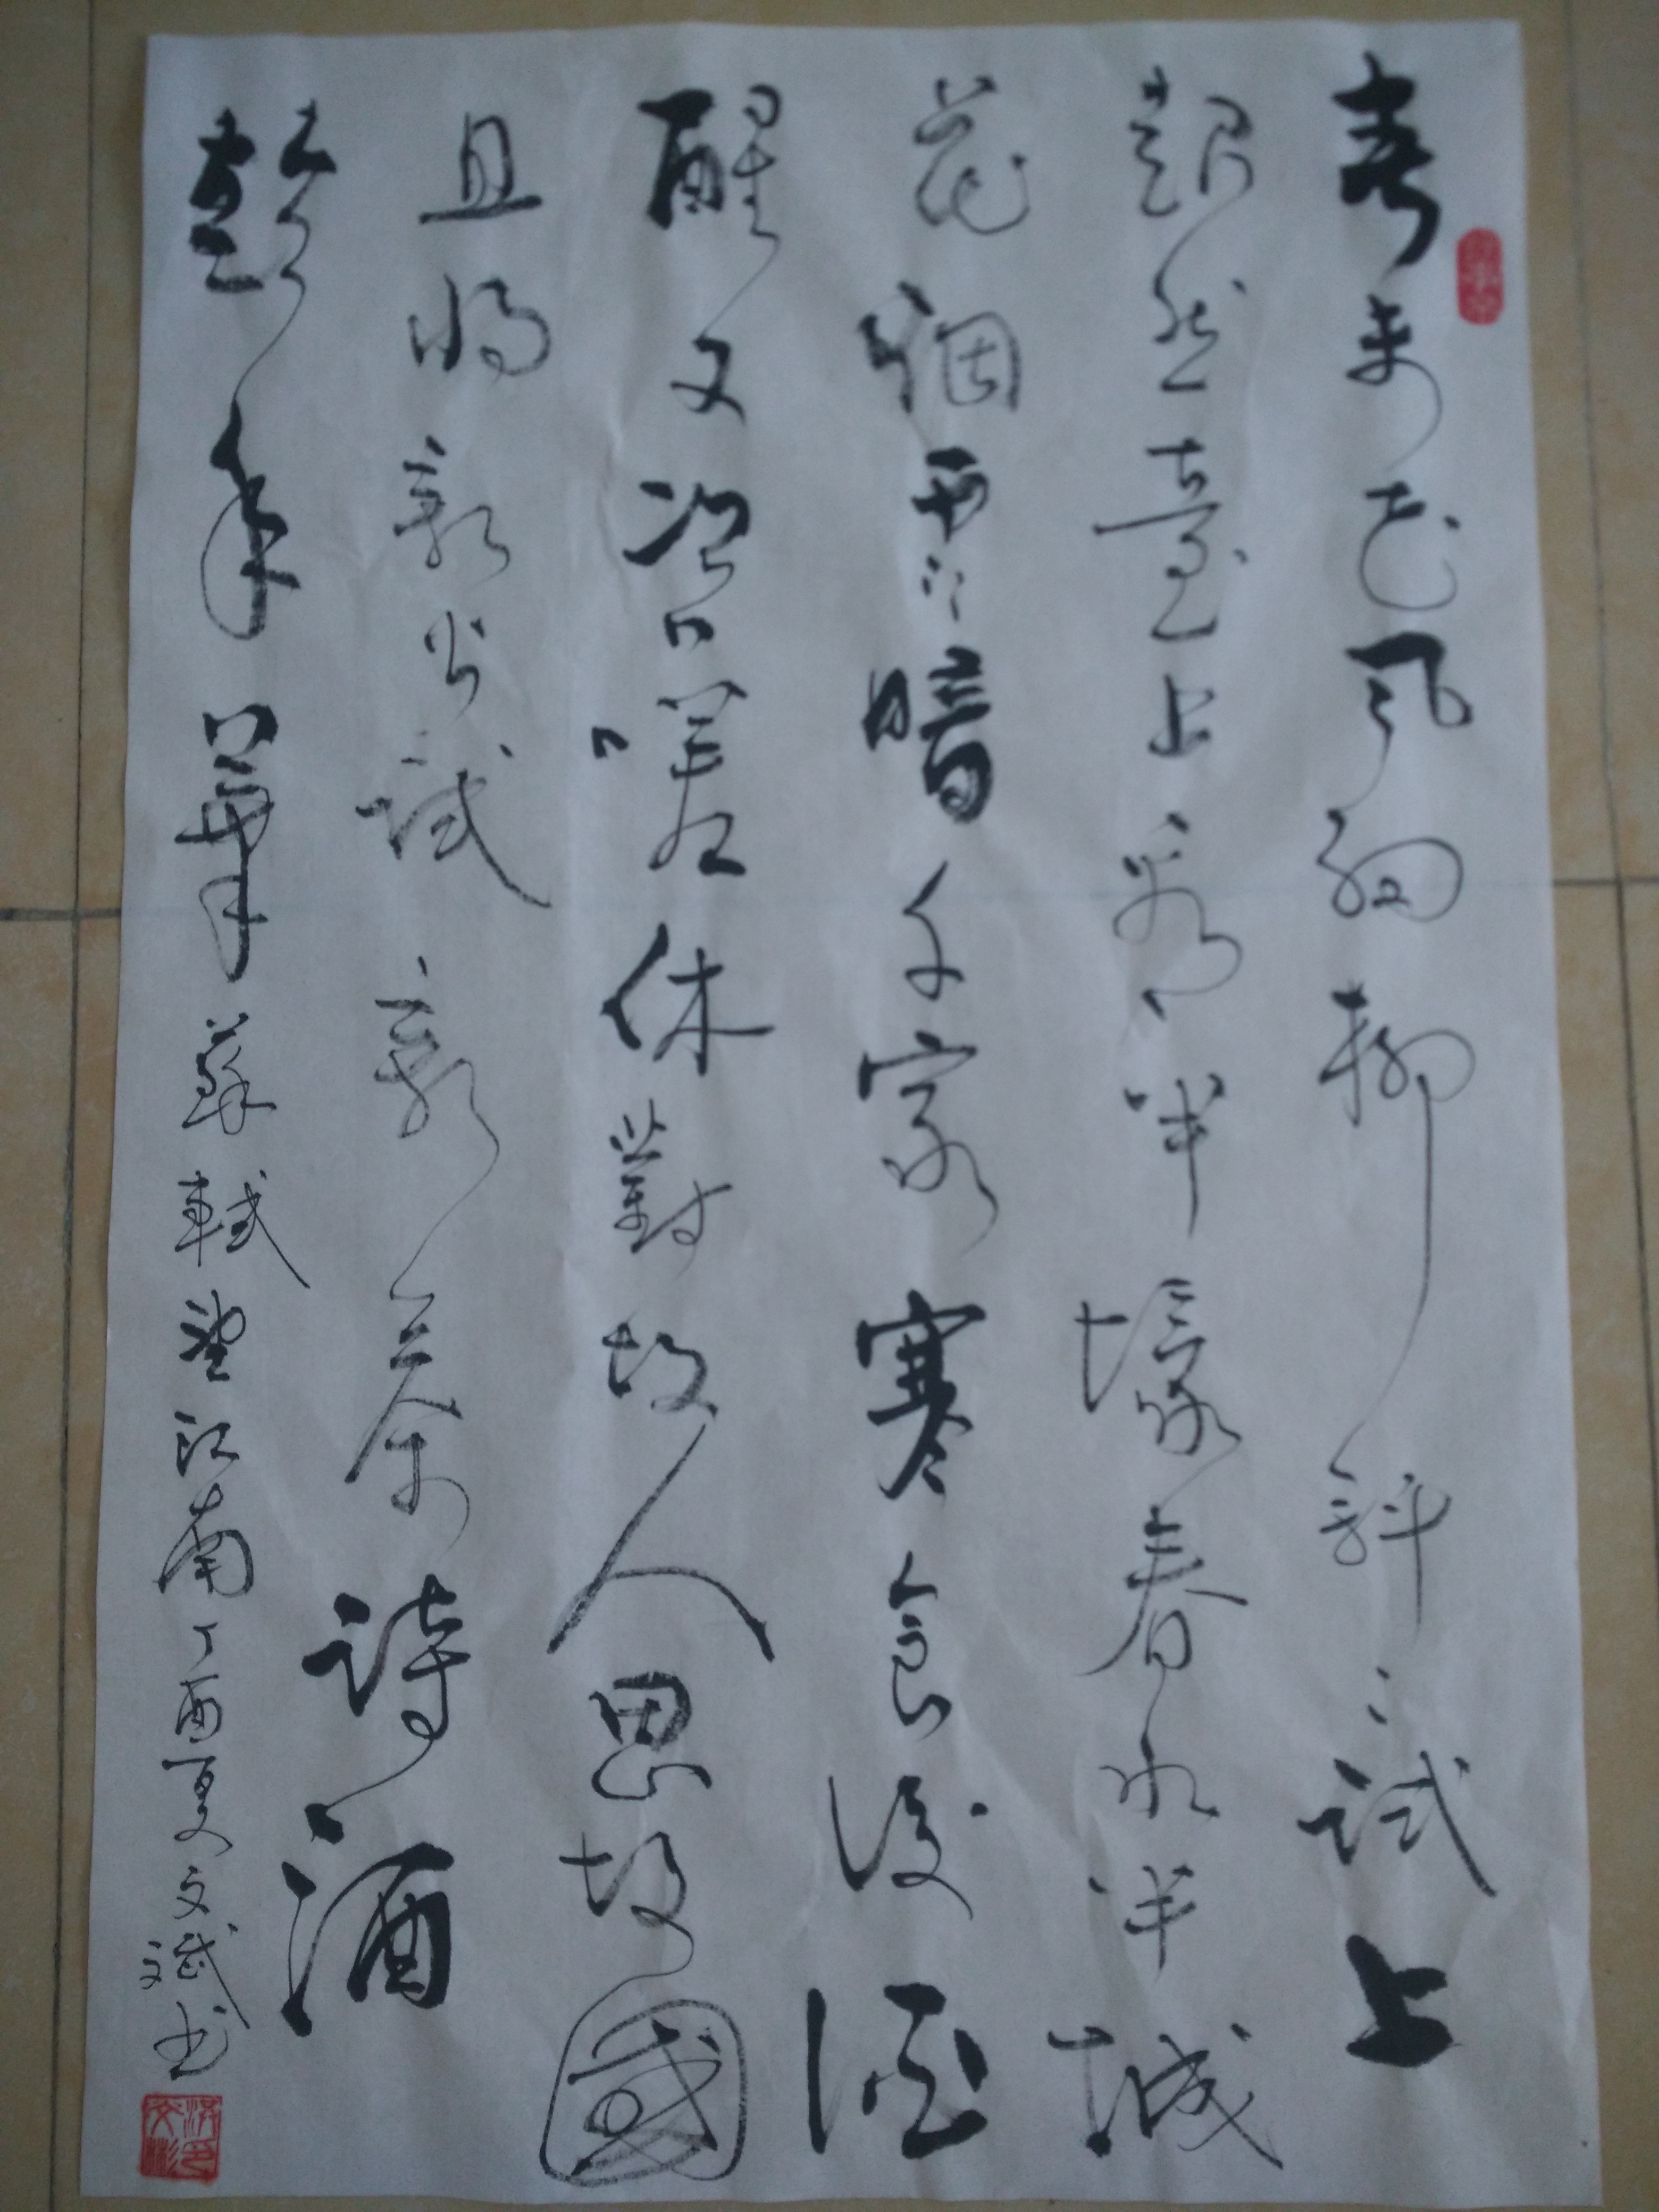 春未老風細柳斜〻試上
超然臺上看半壕春水半城
花烟雨暗千家寒食後酒
醒又咨嗟休對故人思故國
且將新火試新茶詩酒
趁年華 蘇軾望江南丁酉夏文斌书